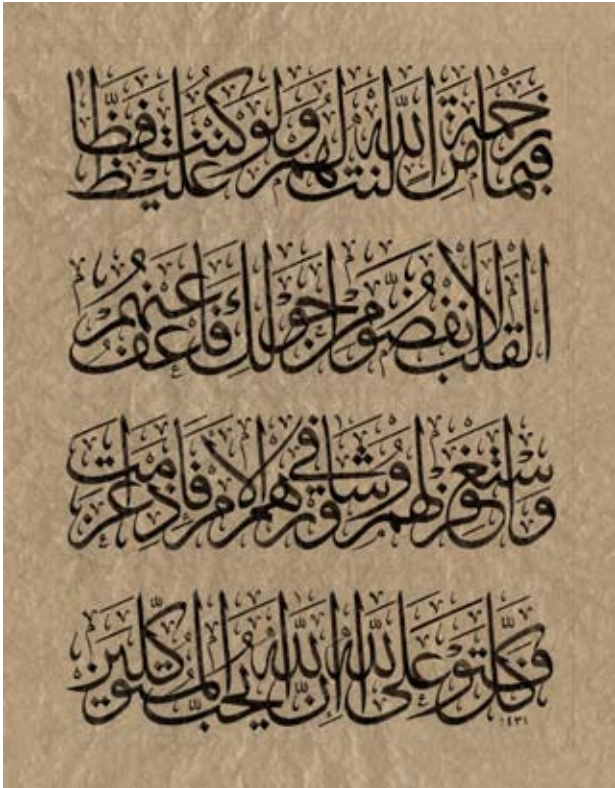 فبما رحمة من الله لنت لهم ولو كنت فظا غليظ
القلب لانفضوا من حولك فاعف عنهم
واستغفر لهم وشاورهم في الامر فاذا عزمت
فتوكل على الله ان الله يحب المتوكلين
١٤٣١